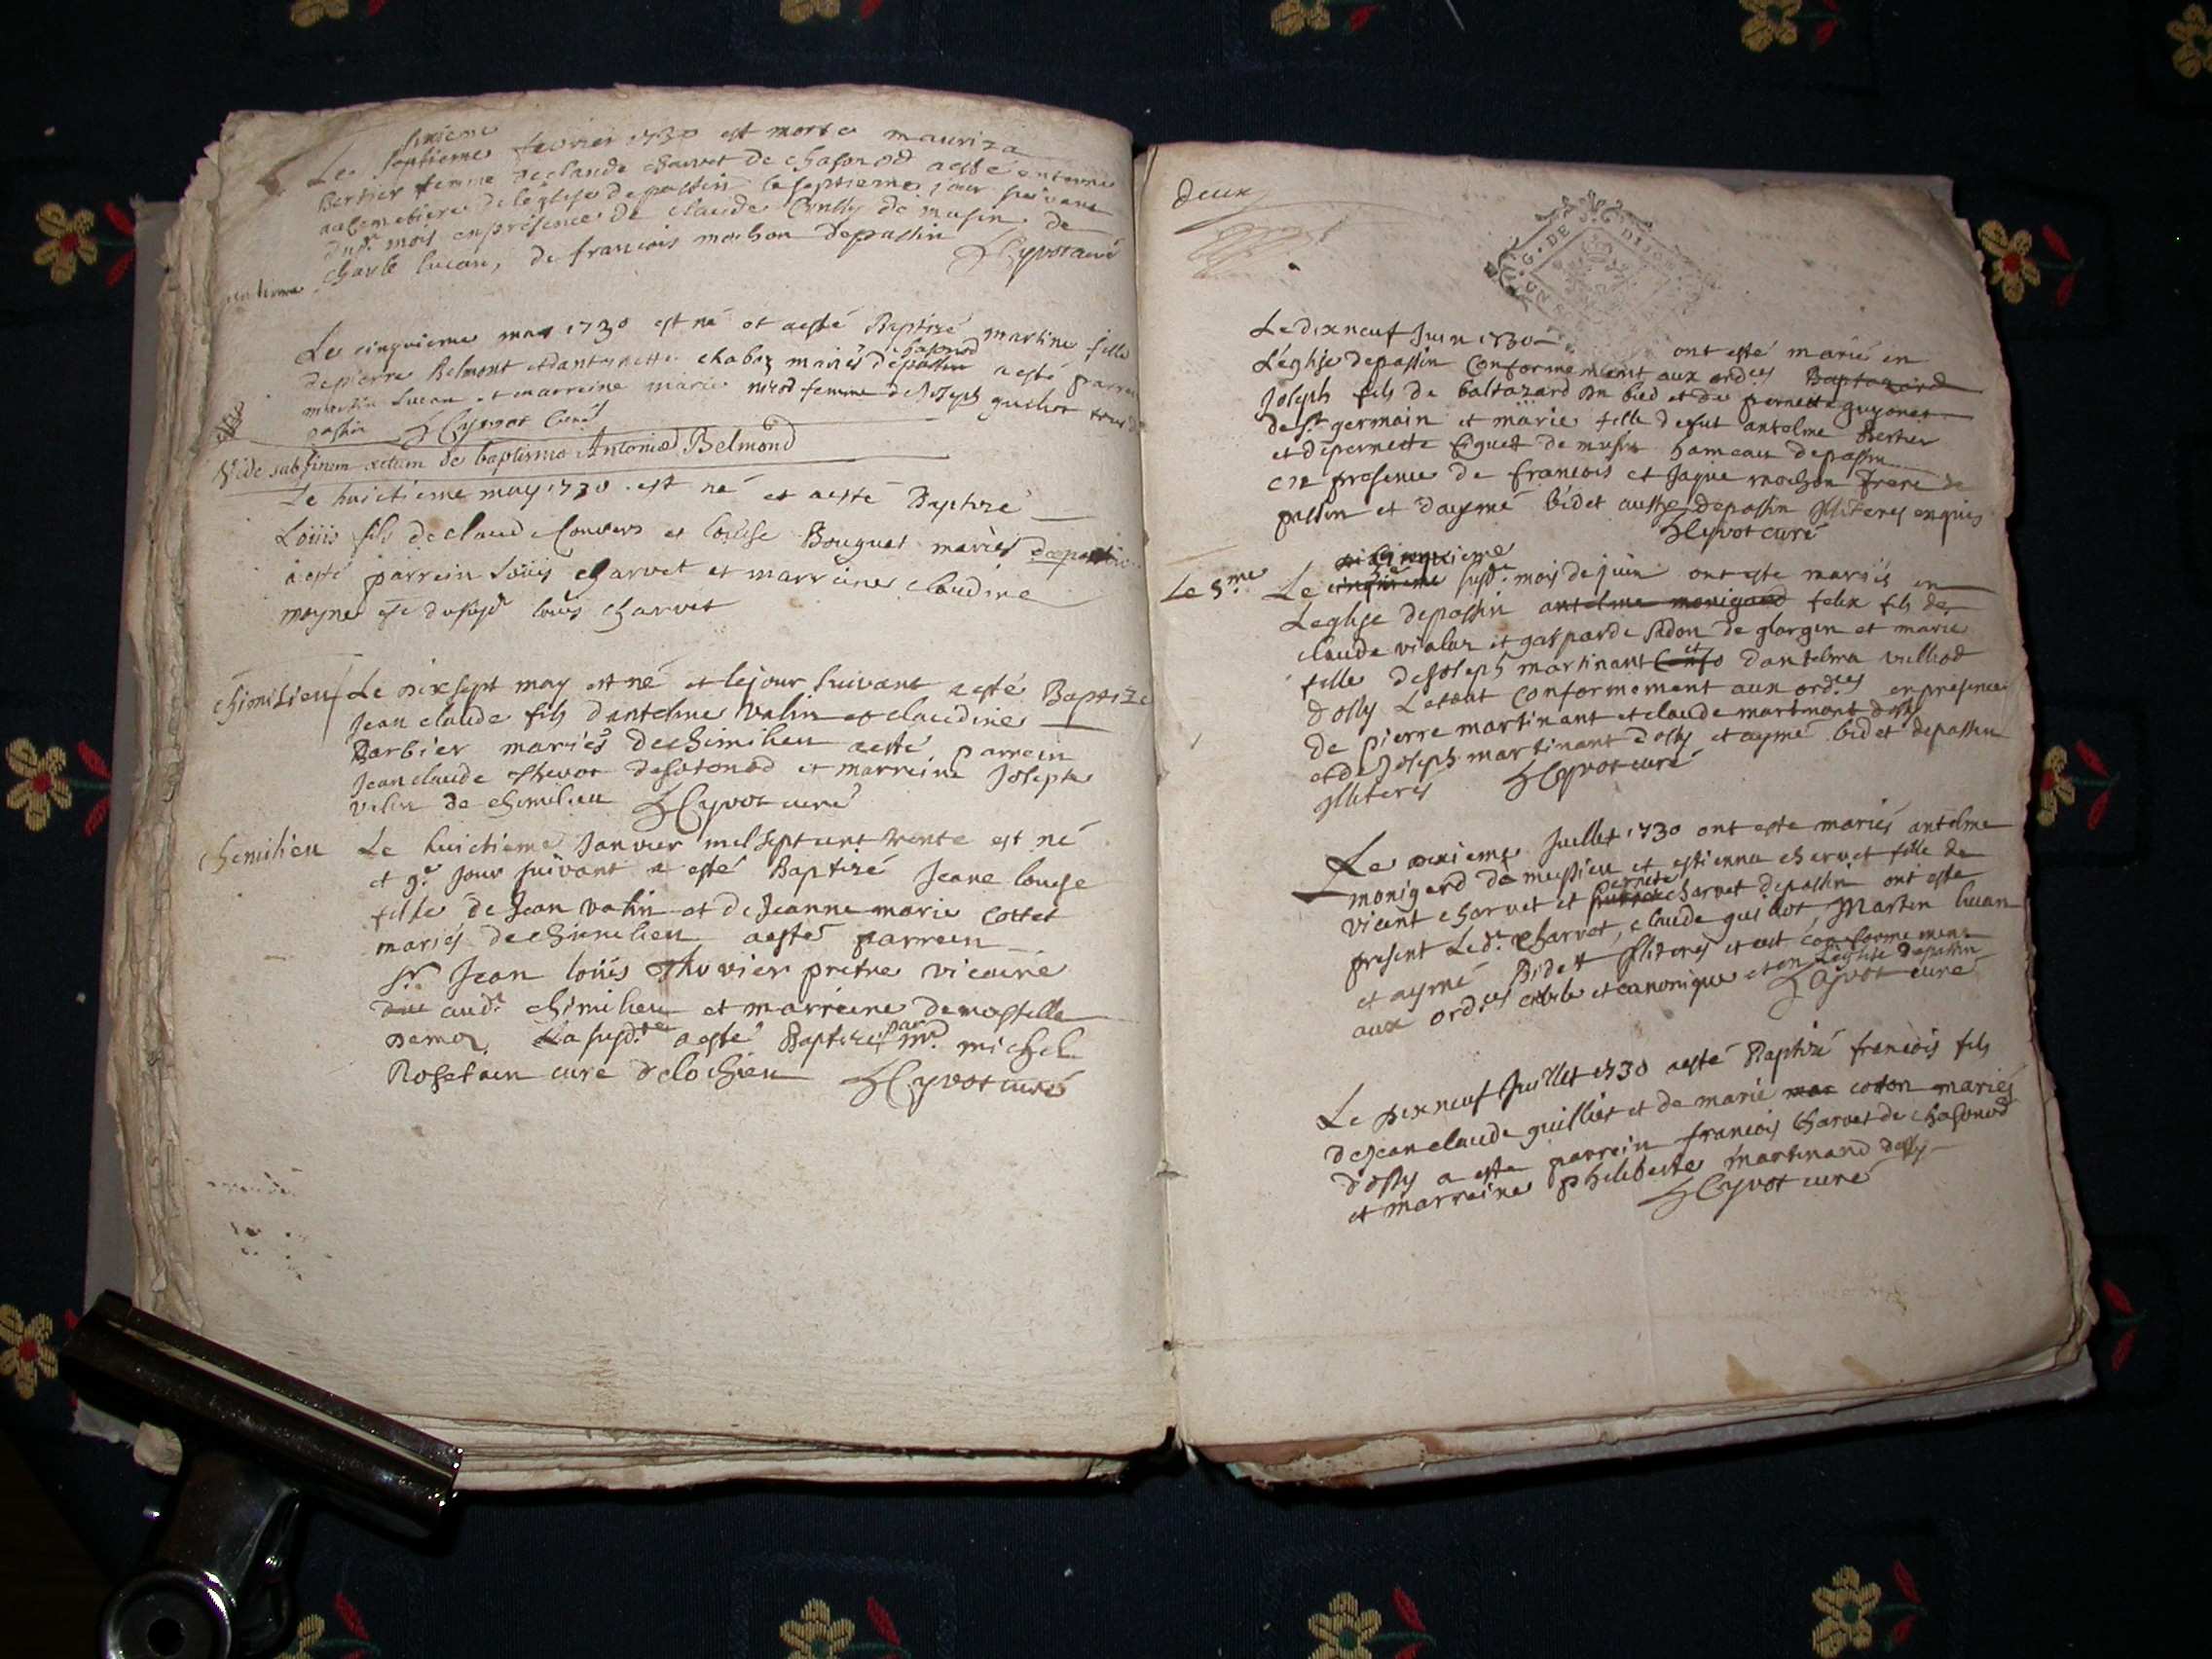 sixieme
Le septieme fevrier 1730 est morte mauriza
Bertier femme de claude charvet de chasonod a esté enterrée
au cemetiere de l'église de passin le septieme jour suivant
dusd. mois en présence de claude de musin de
charle lucan, de francois mochon depassin
HCyvot curé
Le cinquieme may 1730 est né et aesté Baptizé martine fille
chasonod
depierre Belmont et dantoinette chaboz mariés depassin a esté
martin Lucan et marreine marie nicod femme de Joseph guillot
passin HCyvot Curé
Vide sub finem actum de baptismo Antoniae Belmond
Le huictieme may 1730 est né et aesté Baptizé
Loüis fils de claude Convers et Louise Bouquet mariés depassin
a esté parrein Loüis charvet et marreine claudine
moyne du susd louis charvet
chimilieu Le dixsept may est né et lejour suivant a esté Baptize
Jean claude fils dantelme Valin et claudine
Barbier mariés dechimilieu a esté parrein
Jean claude de sotonod et marreine Josepte
valin de chimilieu HCyvot curé
chemilieu Le huictieme Janvier mil sept cent trente est né
et 9e jour suivant a esté Baptizé Jeane louise
fille de Jean valin et de Jeanne marie cottet
mariés dechimilieu a esté parrein
Sr Jean loüis Thuvier pretre vicaire
aud. chimilieu et marreine demoiselle
par
La susd.te a esté Baptizé mr. michel
Rosetain curé delochieu HCyvot curé
deux
G. DE DIJON
Le dix neuf Juin 1730 ont esté marié en
L'église depassin Conformement aux ord.es Baptazard
Joseph fils de baltazard et de pernette guyonet
de st germain et marie fille defut antelme Bertier
et depernette de musin hameau depassin
en presence de francois et Jaque mochon frere de
passin et d'aymé bidet aussy depassin illiterés enquis
HCyvot curé
cinquieme
Le 5.me Le cinquieme susd. mois de juin ont esté mariés en
Leglise depassin antelme monigard felix fils de
claude vialar et gasparde de et marie
et
fille de Joseph martinant dantelma
d'ossy Letout Conformement aux ord.es en présence
de pierre martinant et claude martinant dossy
et de Joseph martinant dossy et aymé bidet depassin
illiterés HCyvot curé
Le dixieme Juillet 1730 ont esté mariés antelme
monigard de mussieu et estienna chervet fille de
pernete
vicent charvet et charvet depassin ont esté
present Led. charvet, claude guillot, Martin lucan
et aymé Bidet illiterés et cest conformement
aux ord.es civile et canonique et en Leglise depassin
HCyvot curé
Le dix neuf Juillet 1730 aesté Baptizé francois fils
de Jean claude guilliet et de marie coton mariés
d'ossy a esté parrein francois Charvet de chasonod
et marreine philiberte martinand dossy
HCyvot curé